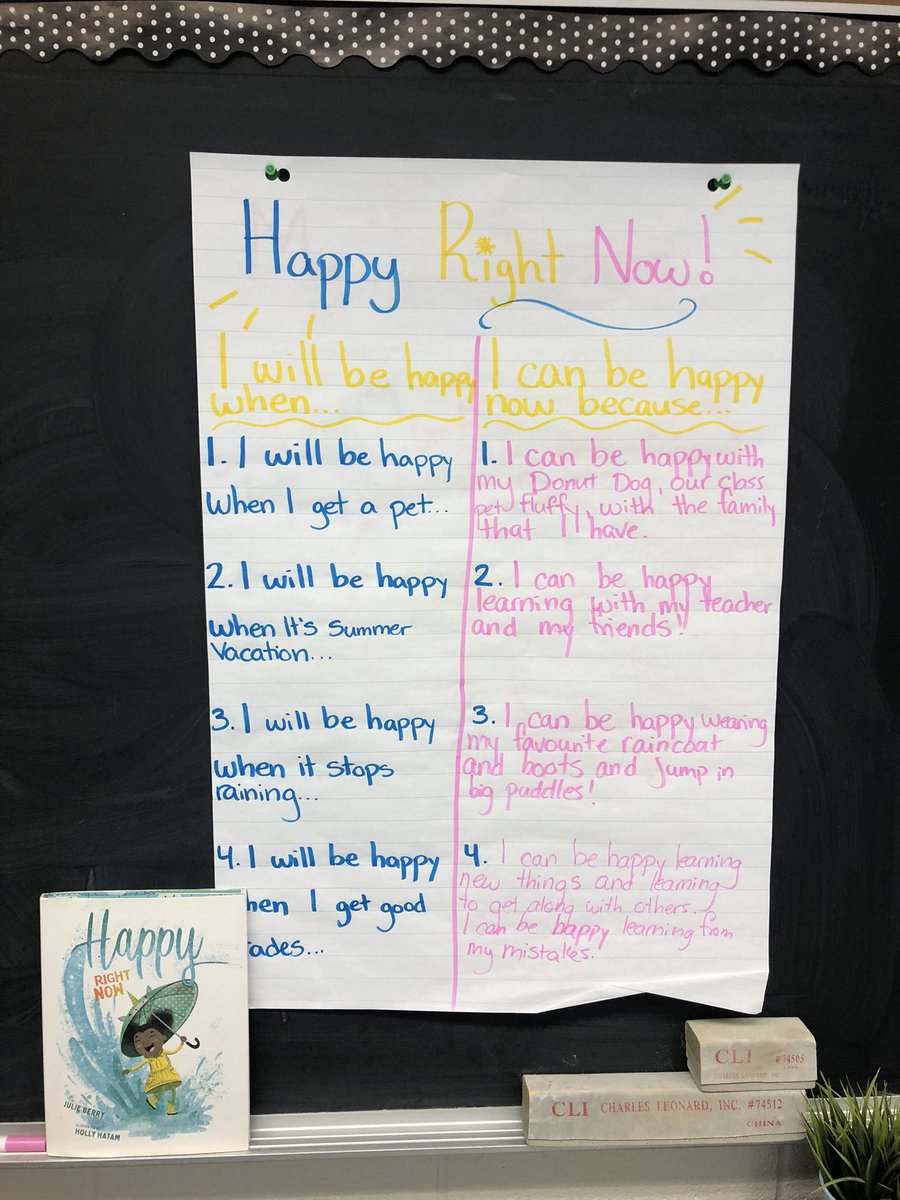 Happy Right Now!
I will be happy
when...
1. I will be happy
when I get a pet...
2. I will be happy
when It's Summer
Vacation...
3. I will be happy
when it stops
raining...
4. I will be happy
hen I get good
ades...
I can be happy
now because...
1. I can be happy with
my Donut Dog, our class
pet fluffy, with the family
that I have.
2. I can be happy
learning with my teacher
and my friends!
3. I can be happy wearing
my favourite raincoat
and boots and jump in
big puddles!
4. I can be happy learning
new things and learning
to get along with others.
I can be happy learning from
my mistakes.
Happy
RIGHT
NOW
JULIE BERRY
HOLLY HATAM
CLI #74505
CHINA
CHARLES LEONARD INC.
CLI CHARLES LEONARD, INC. #74512
CHINA